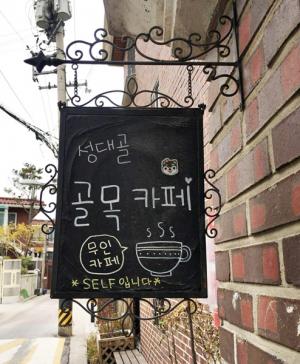 성대골
골목 카페
무인
카페
*SELF입니다*